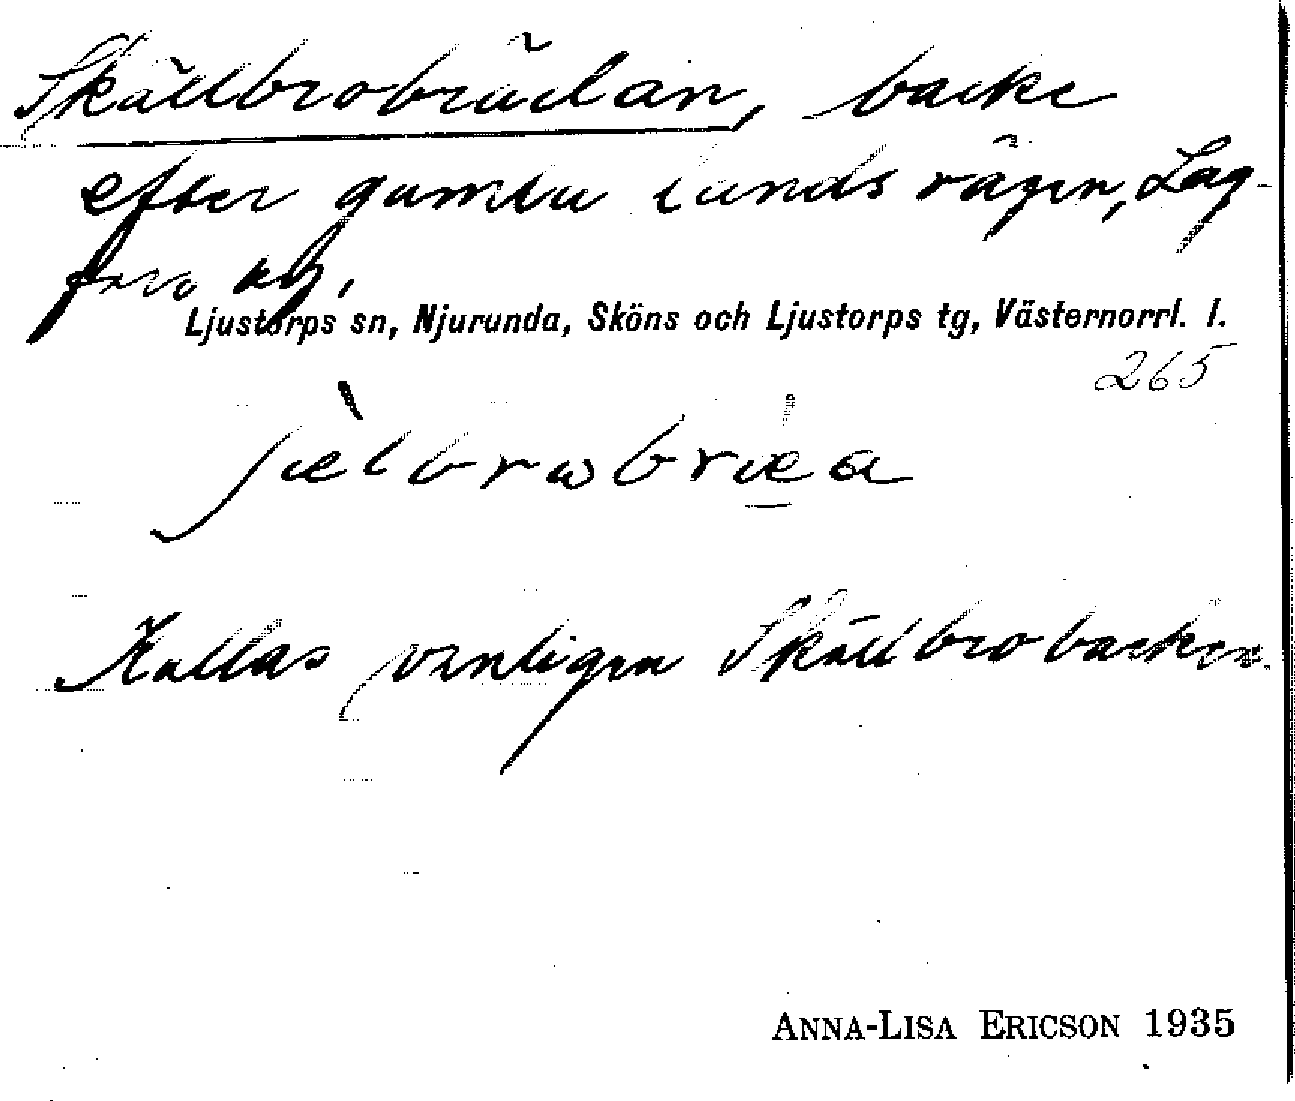 Skällbrobrädan, backe
efter gamla landsvägen, Lag-
fors by,
Ljustorps sn, Njurunda, Sköns och Ljustorps tg, Västernorrl. l.
265
Kallas vanligen Skällbrobacken.
ANNA-LISA ERICSON 1935